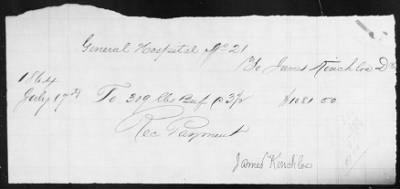 General Hospital No 21
To James Kinchloe Dr
1864
July 17th To 319 lbs Beef @ 3½ $1081 00
Rec Payment
James Kenchloe